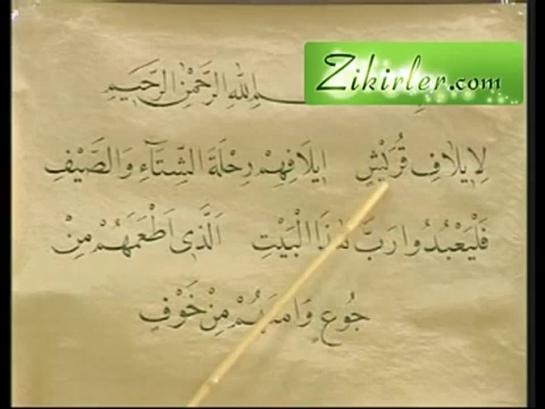 Zikirler.com
ـمِ اللهِ الرَّحْمٰنِ الرَّحٖيمِ
لِاٖيلَافِ قُرَيْشٍ اٖيلَافِهِمْ رِحْلَةَ الشِّتَٓاءِ وَالصَّيْفِ
فَلْيَعْبُدُوا رَبَّ هٰذَا الْبَيْتِ اَلَّذٖى اَطْعَمَهُمْ مِنْ
جُوعٍ وَاٰمَنَهُمْ مِنْ خَوْفٍ